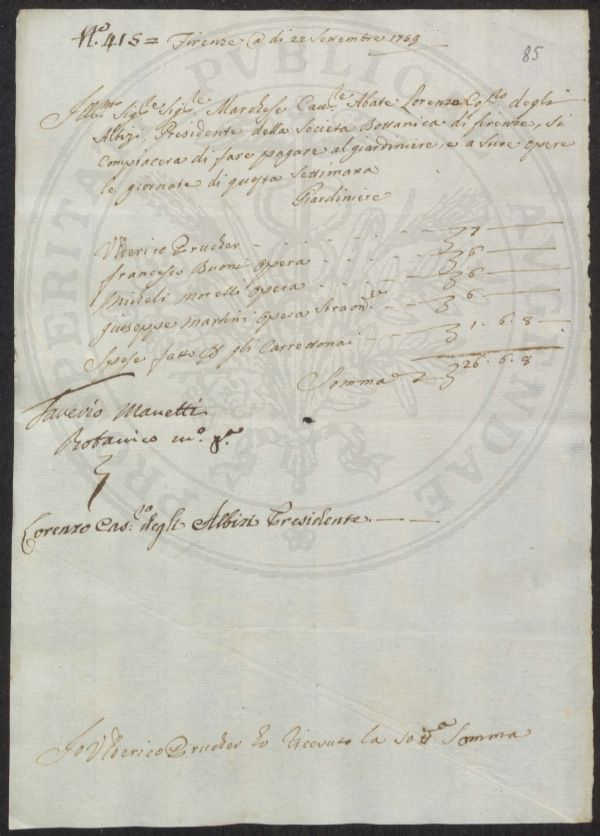 N.o 415 = Firenze @ di 22 Settembre 1759
85
Ill.mo Sig.re Sig.re Marchese Cau.re Abate Lorenzo Cos.mo degli
Albizi, Presidente della Societa Bottanica di firenze, si
compiacera di fare pagare al giardiniere, e a Sure opere
le giornate di questa Settimana
Giardiniere
Ulderico Prucher 7
francesco Buoni opera 6
Micheli Morelli opera 6
giuseppe Martini opera 6
Spese fatto gli Carrettonai 1. 6. 8
Somma 26. 6. 8
Saverio Manetti
Botanico m.o p.a
Lorenzo Cas.o degli Albizi Presidente
Io Ulderico Prucher ho Riceuuto la so d.a Somma
PROSPERITATI PVBLICAE AVGENDAE